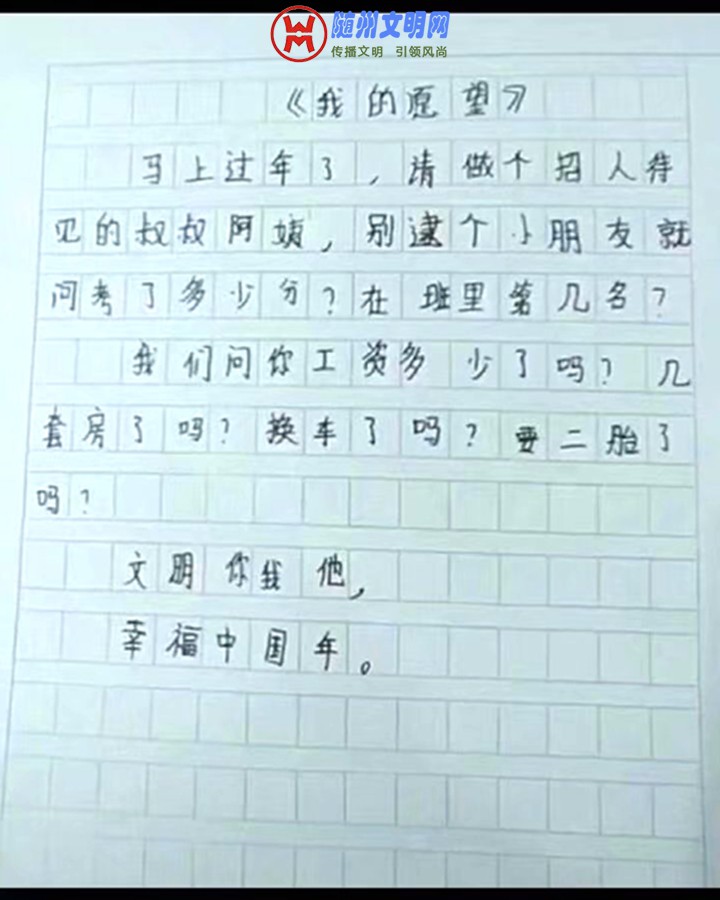 随州文明网
传播文明 引领风尚
《我的愿望》
马上过年了,请做个招人待
见的叔叔阿姨,别逮个小朋友就
问考了多少分?在班里第几名?
我们问你工资多少了吗?几
套房了吗?换车了吗?要二胎了
吗?
文明你我他,
幸福中国年。